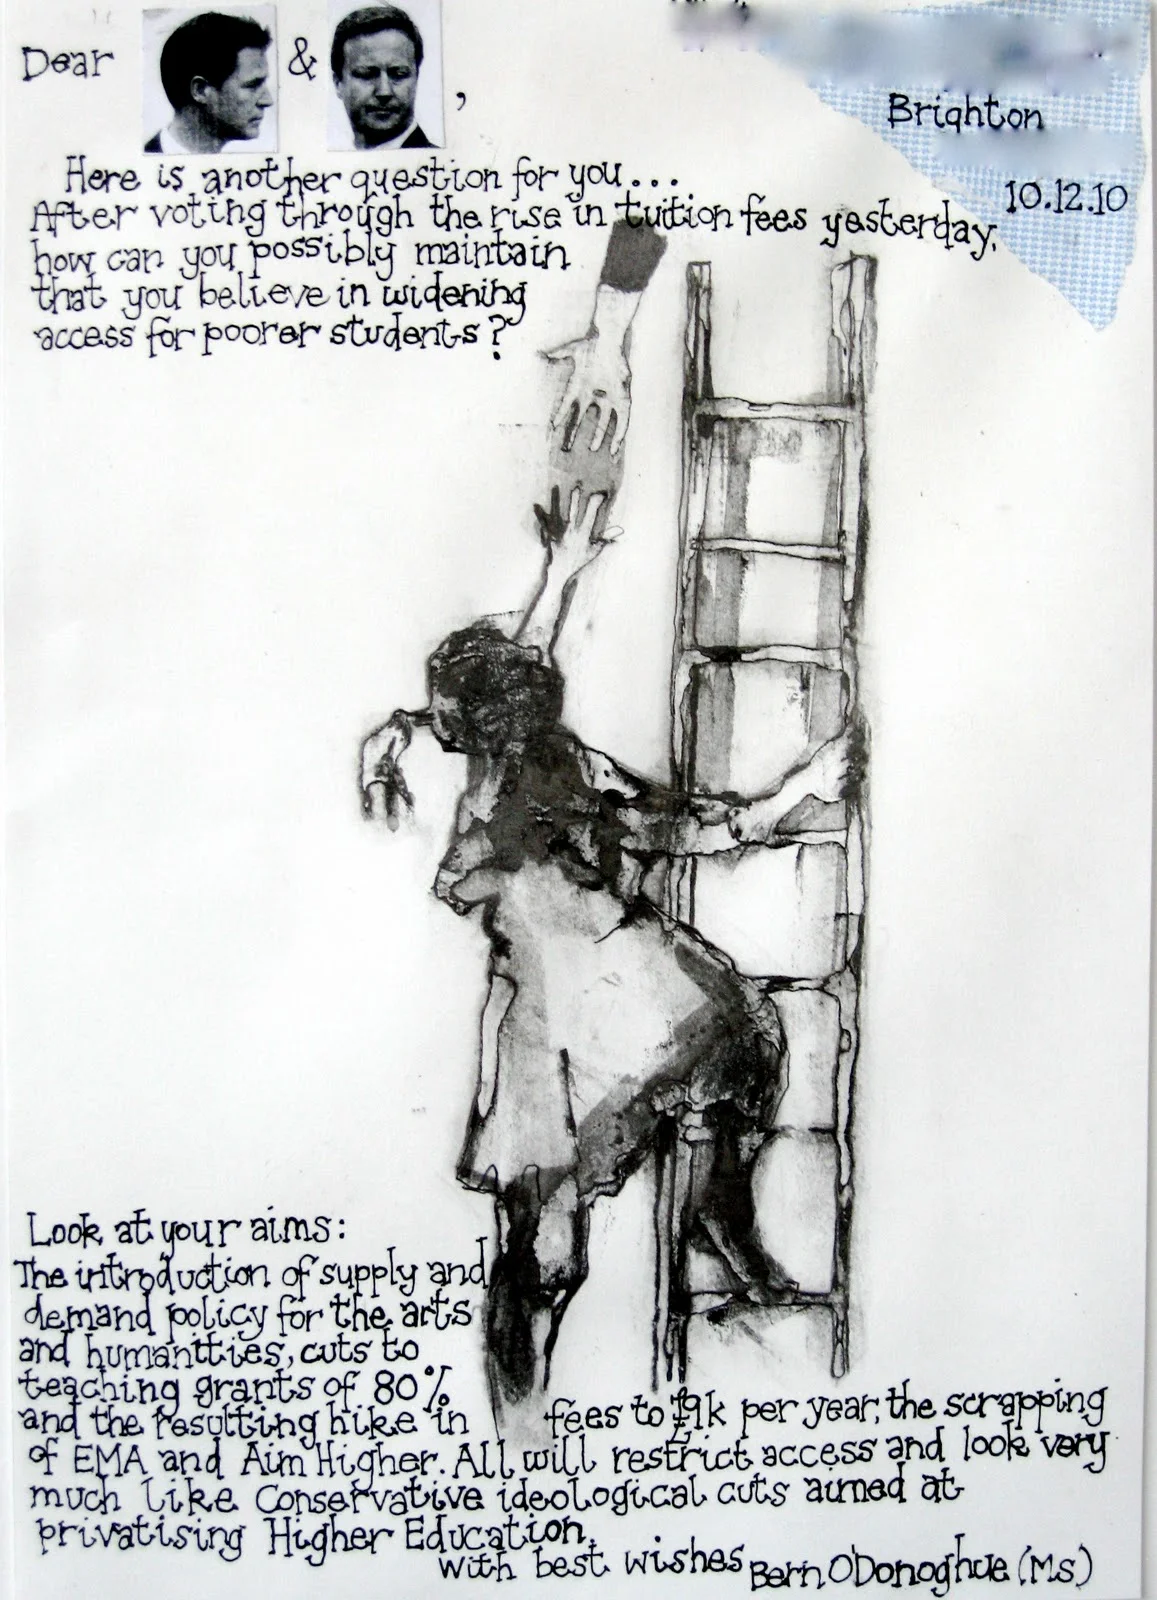 Dear & ,
Brighton
10.12.10
Here is another question for you...
After voting through the rise in tuition fees yesterday,
how can you possibly maintain
that you believe in widening
access for poorer students?
Look at your aims:
The introduction of supply and
demand policy for the arts
and humanities, cuts to
teaching grants of 80%
and the resulting hike in fees to £9k per year, the scrapping
of EMA and Aim Higher. All will restrict access and look very
much like Conservative ideological cuts aimed at
privatising Higher Education.
with best wishes Bern O'Donoghue (Ms)